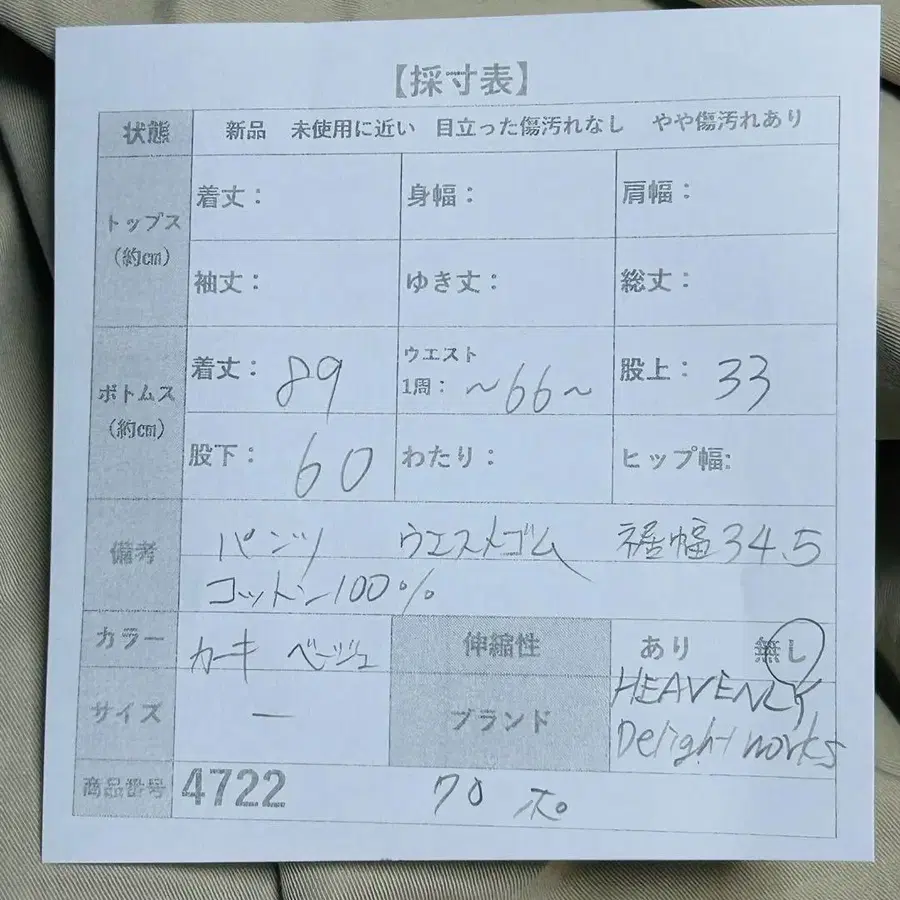 【採寸表】
状態 新品 未使用に近い 目立った傷汚れなし やや傷汚れあり
トップス
(約㎝)
着丈： 身幅： 肩幅：
袖丈： ゆき丈： 総丈：
ボトムス
(約㎝)
着丈： 89 ウエスト
1周： ～66～ 股上： 33
股下： 60 わたり： ヒップ幅:
備考 パンツ ウエストゴム 裾幅34.5
コットン100%
カラー カーキ ベージュ 伸縮性 あり 無し
サイズ ー ブランド HEAVENLY
Delight works
商品番号 4722 70